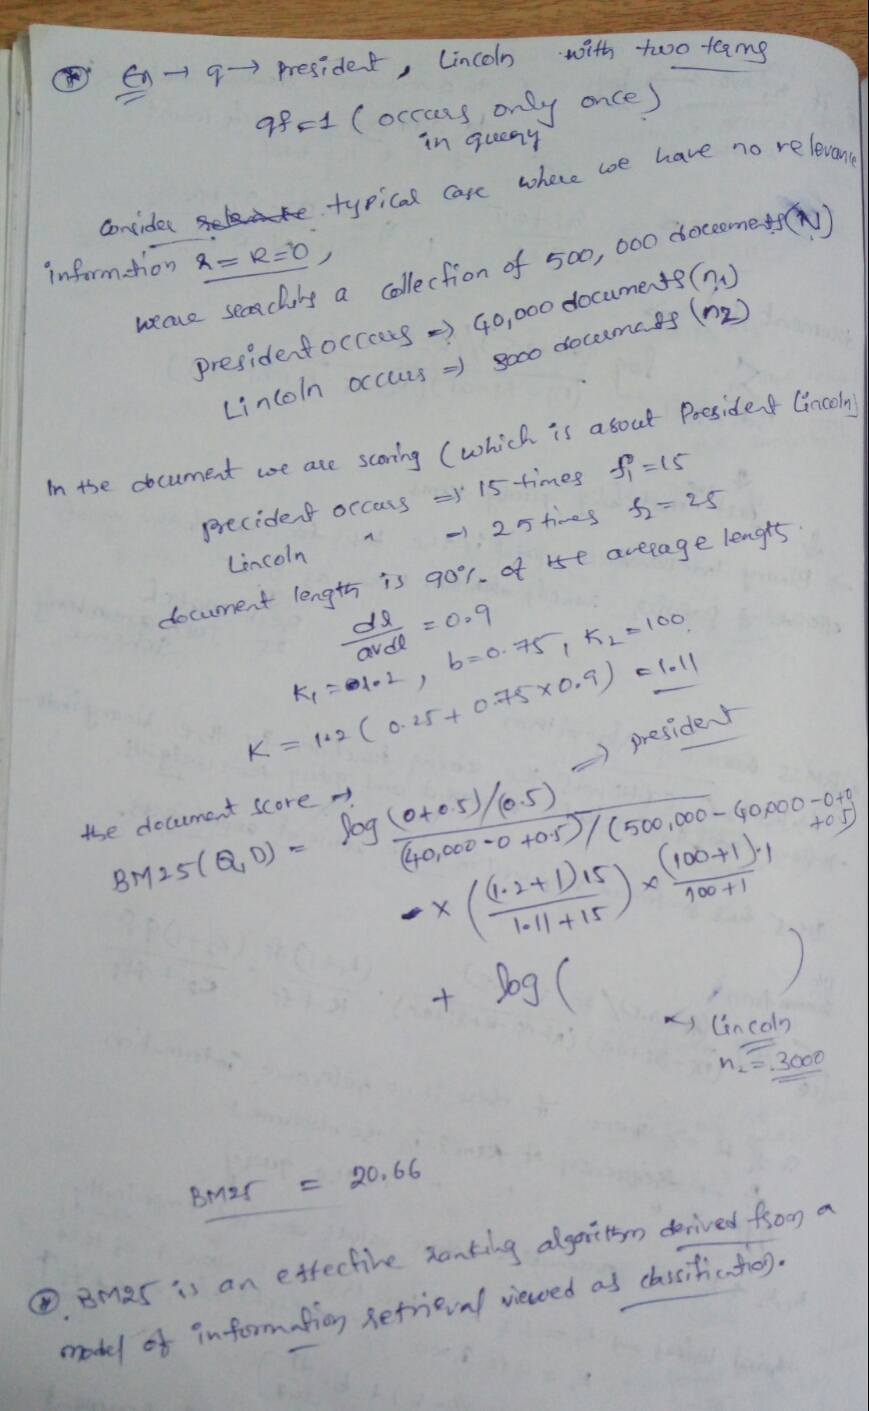 Ex → q → president, Lincoln with two terms
qf=1 (occurs only once)
in query
Consider typical case where we have no relevance
information r = R=0,
we are searching a collection of 500,000 documents (N)
president occurs => 40,000 documents (n1)
Lincoln occurs => 3000 documents (n2)
In the document we are scoring (which is about President Lincoln)
precident occurs => 15 times f1=15
Lincoln " → 25 times f2=25
document length is 90% of the average length.
dl/avdl = 0.9
K1=1.2, b=0.75, K2=100.
K = 1.2 (0.25 + 0.75 x 0.9) = 1.11
=> president
the document score →
BM25(Q,D) = log (0+0.5)/(0.5)
(40,000-0+0.5)/(500,000-40,000-0+0
+0.5)
x ((1.2+1)15 / 1.11+15) x (100+1)·1 / 100+1
+ log ( )
→ Lincoln
n2 = 3000
BM25 = 20.66
* BM25 is an effective ranking algorithm derived from a
model of information retrieval viewed as classification.